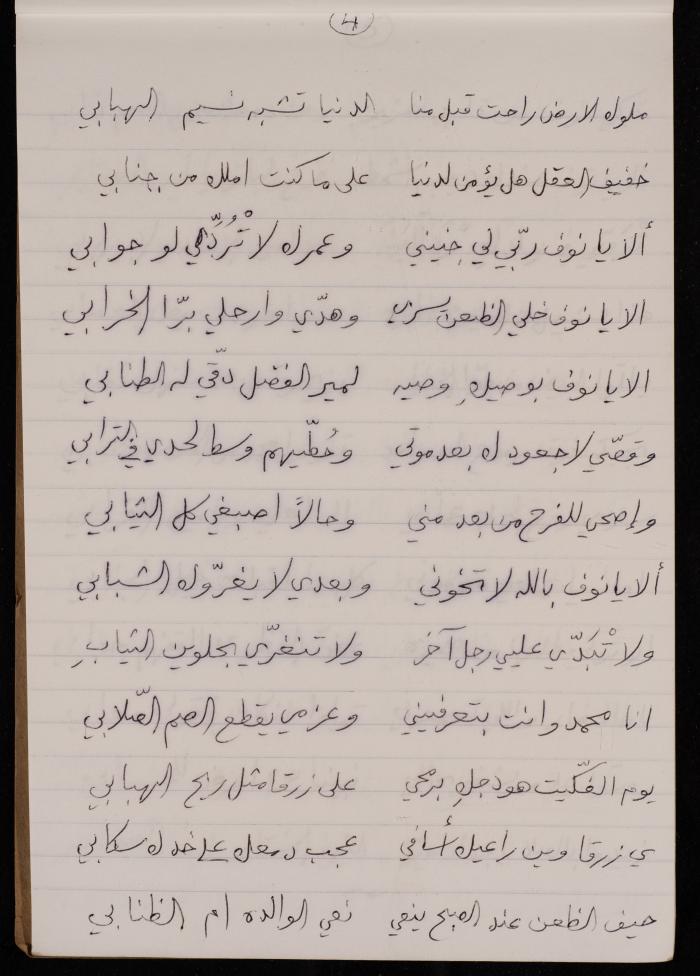 (4)
ملوك الارض راحت قبل منا الدنيا تشبه نسيم الهبابي
خفيف العقل هل يؤمن لدنيا على ما كنت املك من جنابي
ألا يا نوف ربّي لي جنيني وعمرك لا تْرُدّي لو جوابي
الا يا نوف خلي الظعن يسري وهدّي وارحلي برّا الخرابي
الا يا نوف بوصيكِ وصيه لمير الفضل دقّي له الطنابي
وقصّي لا جعودك بعد موتي وحُطّيهم وسط لحدي في الترابي
وإصحي للفرح من بعد مني وحالاً اصبغي كل الثيابي
ألا يا نوف بالله لا تخوني وبعدي لا يغرّوك الشبابي
ولا تْبَدّي عليي رجل آخر ولا تنغرّي بجلوين الثيابِ
انا محمد وانت بتعرفيني وعزمي يقطع الصم الصّلابي
يوم الفكّيت هودجلِ برمحي على زرقا مثل ريح الهبابي
يي زرقا وين راعيك أسافي عجب دمعك على خدك سكابي
حيف الظعن عند الصبح ينعي نعي الوالده ام الظنابي